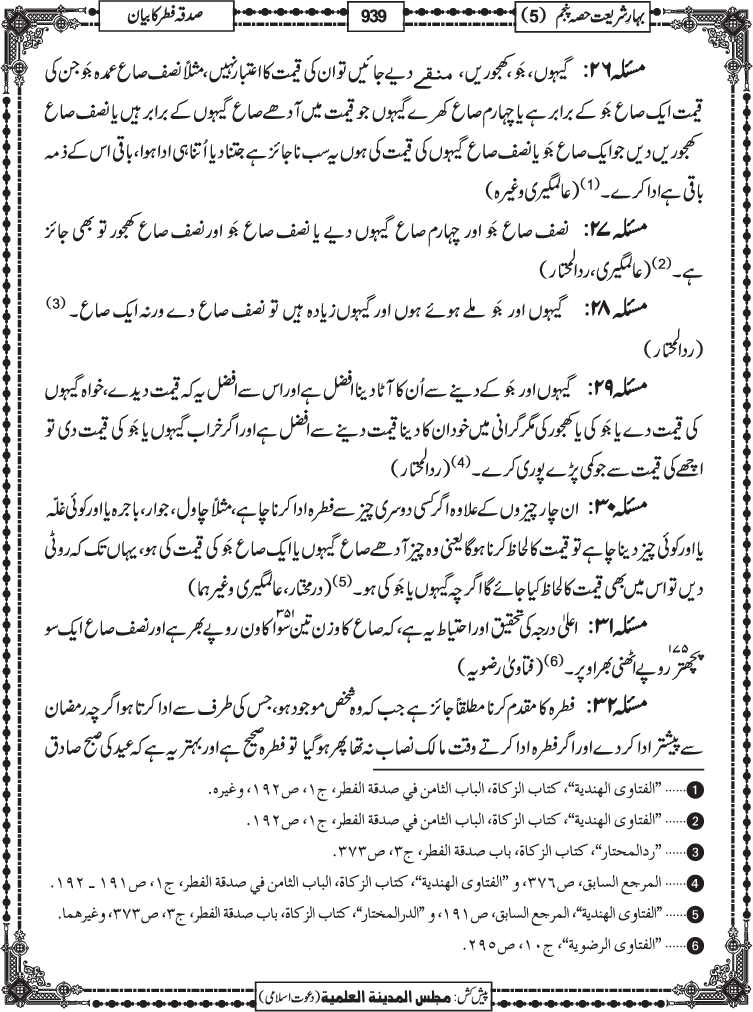 بہارِ شریعت حصہ پنجم (5)
939
صدقہ فطر کا بیان
مسئلہ ۲۶: گیہوں، جَو، کھجوریں، منقے دیے جائیں تو ان کی قیمت کا اعتبار نہیں، مثلاً نصف صاع عمدہ جَو جن کی
قیمت ایک صاع جَو کے برابر ہے یا چہارم صاع کھرے گیہوں جو قیمت میں آدھے صاع گیہوں کے برابر ہیں یا نصف صاع
کھجوریں دیں جو ایک صاع جَو یا نصف صاع گیہوں کی قیمت کی ہوں یہ سب ناجائز ہے جتنا دیا اُتنا ہی ادا ہوا، باقی اس کے ذمہ
باقی ہے ادا کرے۔(1) (عالمگیری وغیرہ)
مسئلہ ۲۷: نصف صاع جَو اور چہارم صاع گیہوں دیے یا نصف صاع جَو اور نصف صاع کھجور تو بھی جائز
ہے۔(2) (عالمگیری، ردالمحتار)
مسئلہ ۲۸: گیہوں اور جَو ملے ہوئے ہوں اور گیہوں زیادہ ہیں تو نصف صاع دے ورنہ ایک صاع۔(3)
(ردالمحتار)
مسئلہ ۲۹: گیہوں اور جَو کے دینے سے اُن کا آٹا دینا افضل ہے اور اس سے افضل یہ کہ قیمت دیدے، خواہ گیہوں
کی قیمت دے یا جَو کی یا کھجور کی مگر گرانی میں خود ان کا دینا قیمت دینے سے افضل ہے اور اگر خراب گیہوں یا جَو کی قیمت دی تو
اچھے کی قیمت سے جو کمی پڑے پوری کرے۔(4) (ردالمحتار)
مسئلہ ۳۰: ان چار چیزوں کے علاوہ اگر کسی دوسری چیز سے فطرہ ادا کرنا چاہے، مثلاً چاول، جوار، باجرہ یا اور کوئی غلّہ
یا اور کوئی چیز دینا چاہے تو قیمت کا لحاظ کرنا ہوگا یعنی وہ چیز آدھے صاع گیہوں یا ایک صاع جَو کی قیمت کی ہو، یہاں تک کہ روٹی
دیں تو اس میں بھی قیمت کا لحاظ کیا جائے گا اگرچہ گیہوں یا جَو کی ہو۔(5) (درمختار، عالمگیری وغیرہما)
مسئلہ ۳۱: اعلیٰ درجہ کی تحقیق اور احتیاط یہ ہے، کہ صاع کا وزن تین سو۳۵۱ اکاون روپے بھر ہے اور نصف صاع ایک سو
۱۷۵ پچھتر روپے اٹھنی بھر اوپر۔(6) (فتاویٰ رضویہ)
مسئلہ ۳۲: فطرہ کا مقدم کرنا مطلقاً جائز ہے جب کہ وہ شخص موجود ہو، جس کی طرف سے ادا کرتا ہو اگرچہ رمضان
سے پیشتر ادا کر دے اور اگر فطرہ ادا کرتے وقت مالک نصاب نہ تھا پھر ہوگیا تو فطرہ صحیح ہے اور بہتر یہ ہے کہ عید کی صبح صادق
1 ...... ”الفتاوى الهندية“، كتاب الزكاة، الباب الثامن في صدقة الفطر، ج۱، ص۱۹۲، وغيره.
2 ...... ”الفتاوى الهندية“، كتاب الزكاة، الباب الثامن في صدقة الفطر، ج۱، ص۱۹۲.
3 ...... ”ردالمحتار“، كتاب الزكاة، باب صدقة الفطر، ج۳، ص۳۷۳.
4 ...... المرجع السابق، ص۳۷۶، و ”الفتاوى الهندية“، كتاب الزكاة، الباب الثامن في صدقة الفطر، ج۱، ص۱۹۱ ـ ۱۹۲.
5 ...... ”الفتاوى الهندية“، المرجع السابق، ص۱۹۱، و ”الدرالمختار“، كتاب الزكاة، باب صدقة الفطر، ج۳، ص۳۷۳، وغيرهما.
6 ...... ”الفتاوى الرضوية“، ج۱۰، ص۲۹۵.
پیش کش: مجلس المدینة العلمیة (دعوت اسلامی)